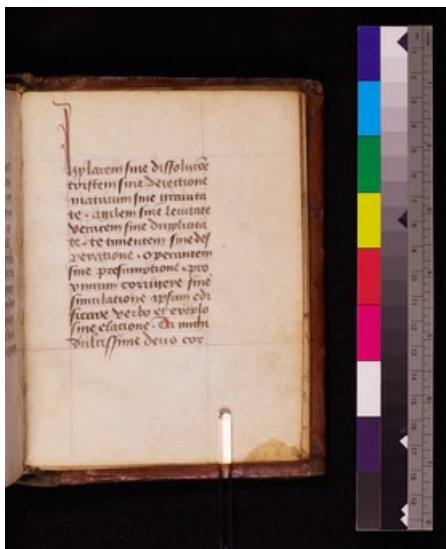 Hylarem sine dissolucõe
tristem sine deiectione
maturum sine grauita
te · agilem sine leuitate
veracem sine duplicita
te · te timentem sine des
peratione · operantem
sine presumptione · pro
ximum corrigere sine
simulatione ipsum edi
ficare verbo et exemplo
sine elatione · Da michi
dulcissime deus cor